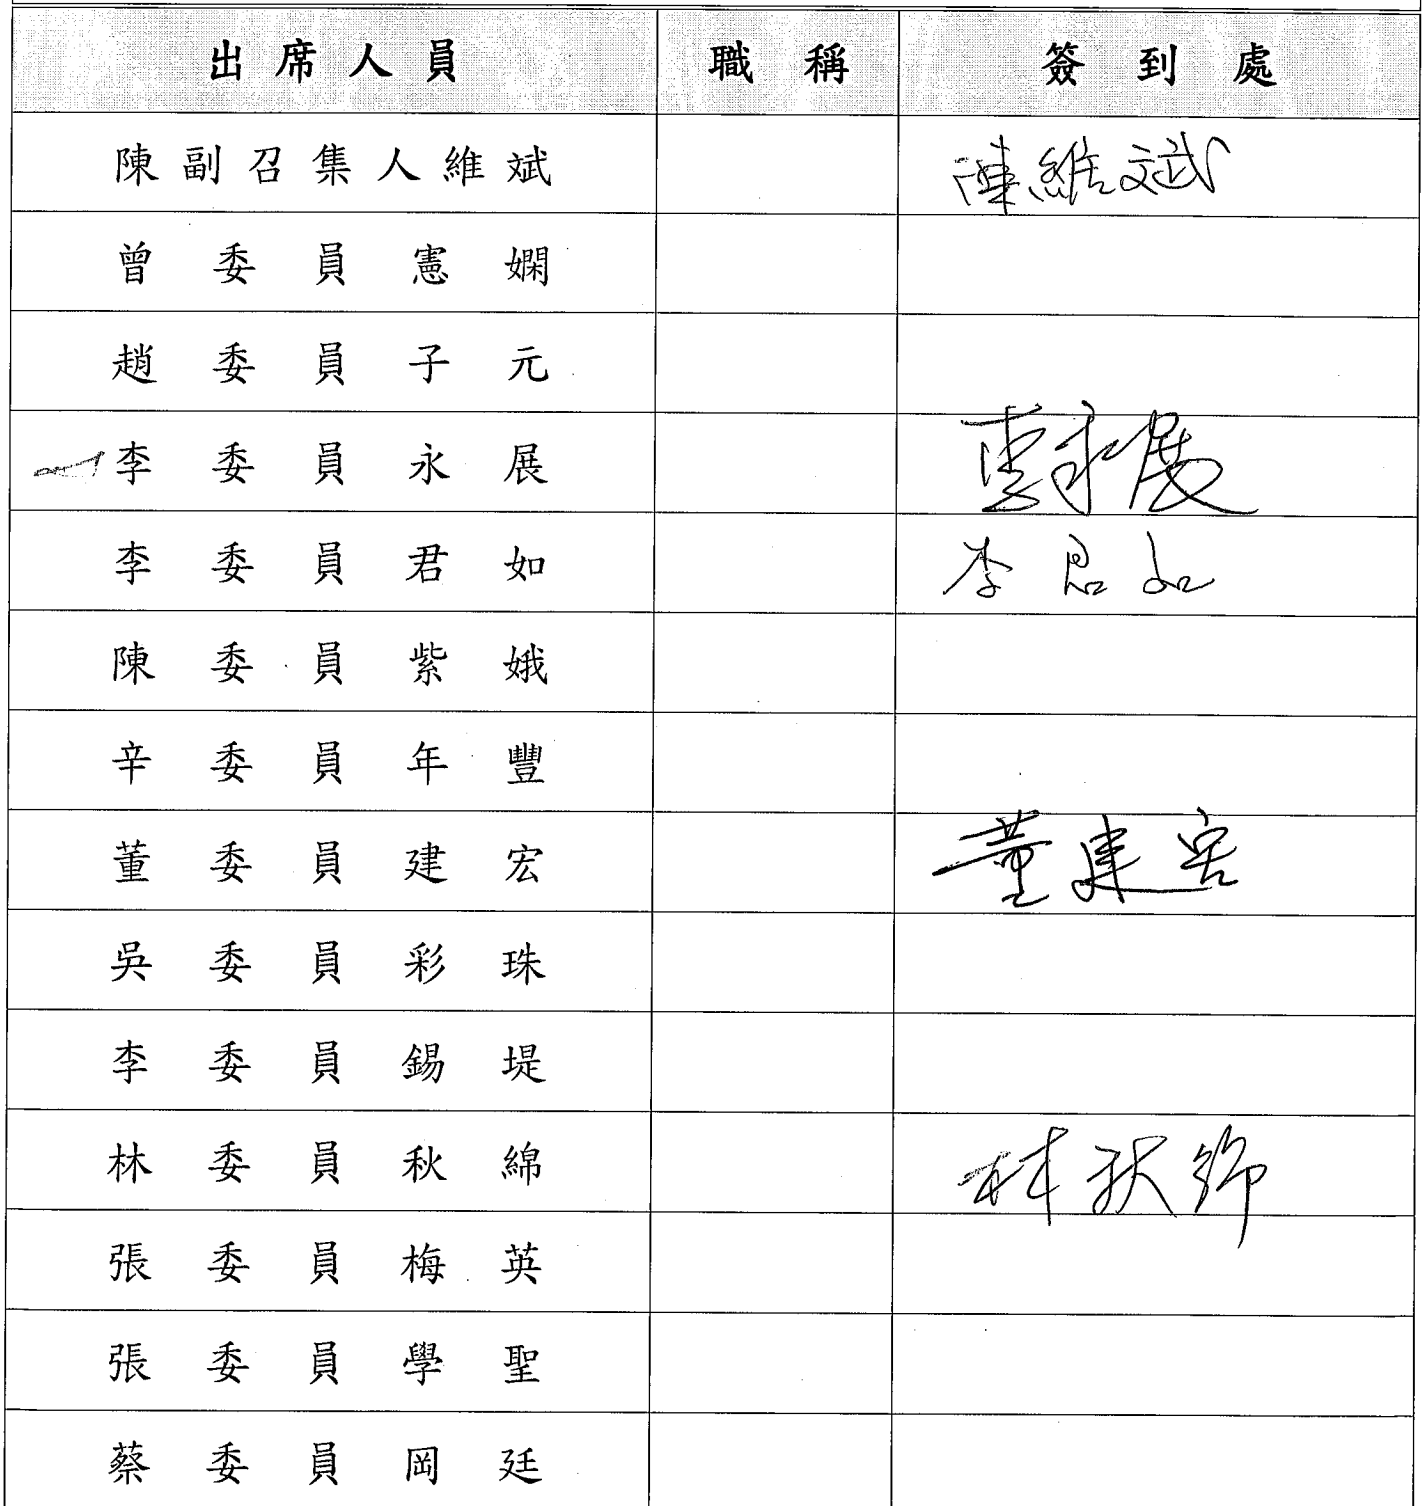 出席人員 職稱 簽到處
陳副召集人維斌 陳維斌
曾委員憲嫻
趙委員子元
李委員永展 李永展
李委員君如 李君如
陳委員紫娥
辛委員年豐
董委員建宏 董建宏
吳委員彩珠
李委員錫堤
林委員秋綿 林秋綿
張委員梅英
張委員學聖
蔡委員岡廷